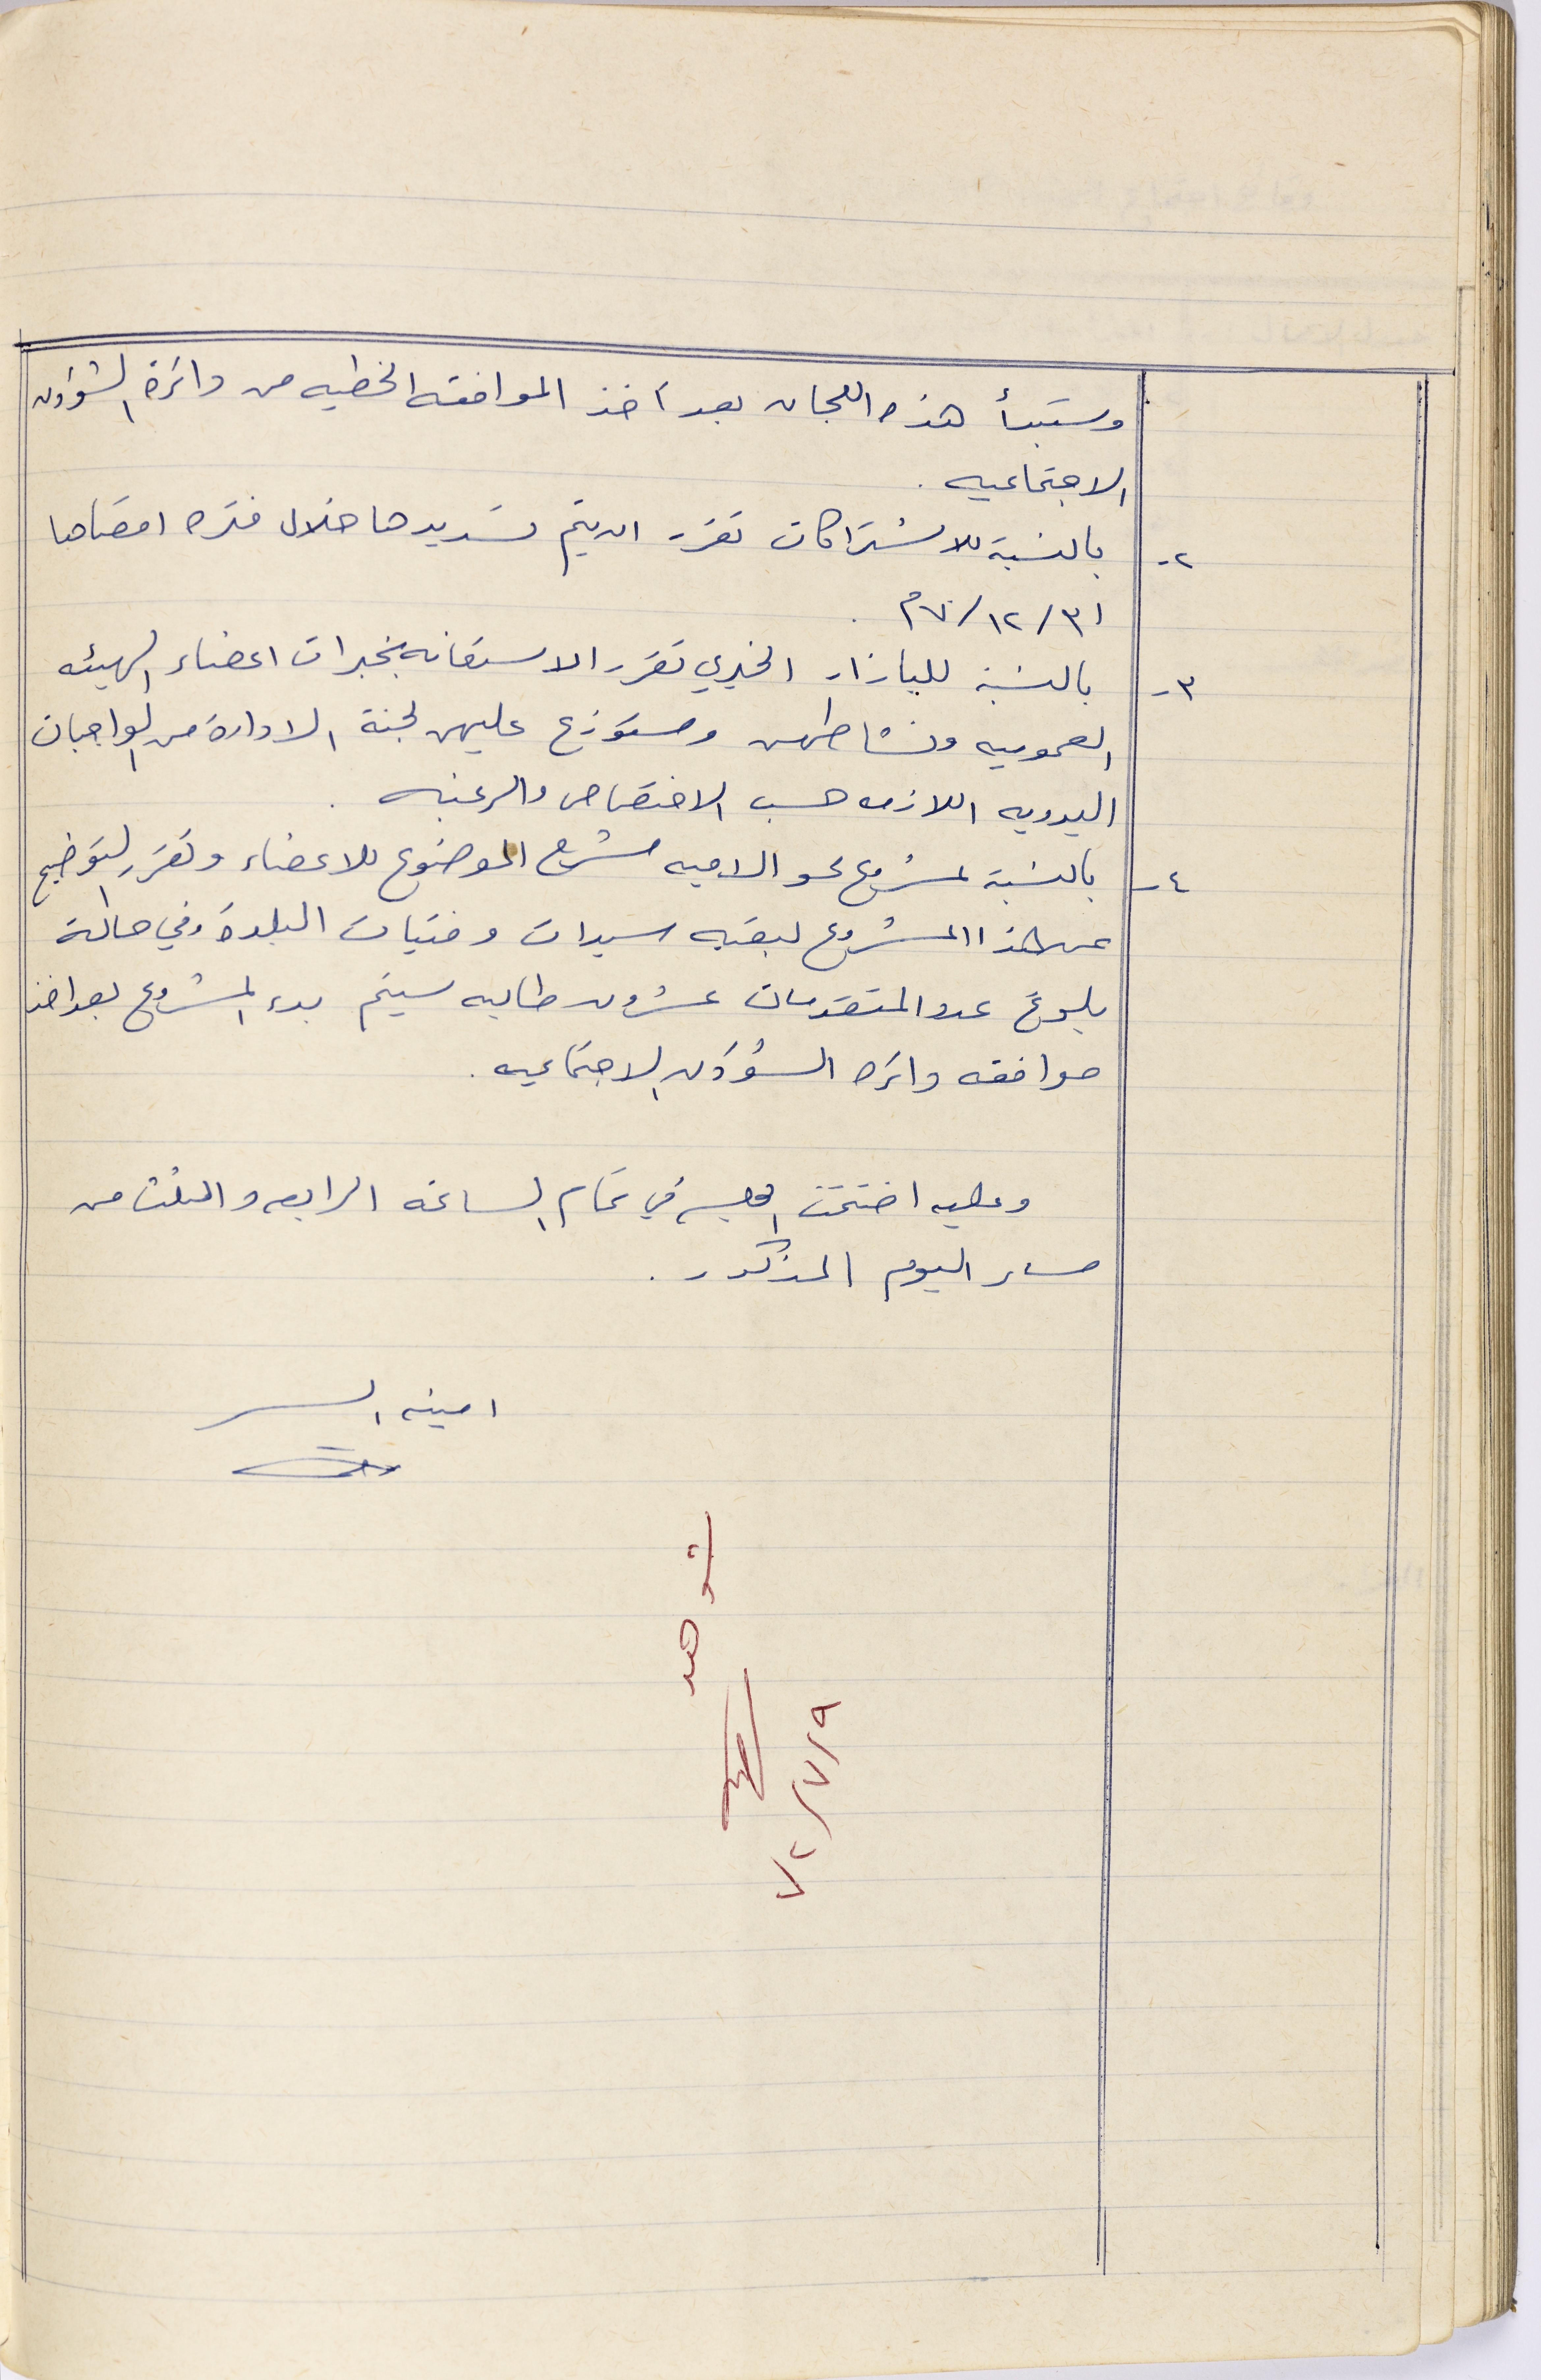 وستبدأ هذه اللجان بعد أخذ الموافقه الخطيه من دائرة الشؤون
الاجتماعيه .
٢- بالنسبة للاشتراكات تقرر ان يتم تسديدها خلال فتره اقصاها
٣١/١٢/٧٠م .
٣- بالنسبة للبازار الخيري تقرر الاستعانه بخبرات اعضاء الهيئه
العموميه ونشاطهن وستوزع عليهن لجنة الادارة من الواجبات
اليدويه اللازمه حسب الاختصاص والرغبه .
٤- بالنسبة لمشروع محو الاميه شرح الموضوع للاعضاء وتقرر التوضيح
عن هذا المشروع لبقيه سيدات وفتيات البلدة وفي حالة
بلوغ عدد المتقدمات عشرون طالبه سيتم بدء المشروع بعد اخذ
موافقه دائره الشؤون الاجتماعيه .
وعليه اختتمت الجلسه في تمام الساعه الرابعه والثلث من
مساء اليوم المذكور .
امينه السر
شوهد
٧٢/٧/٩